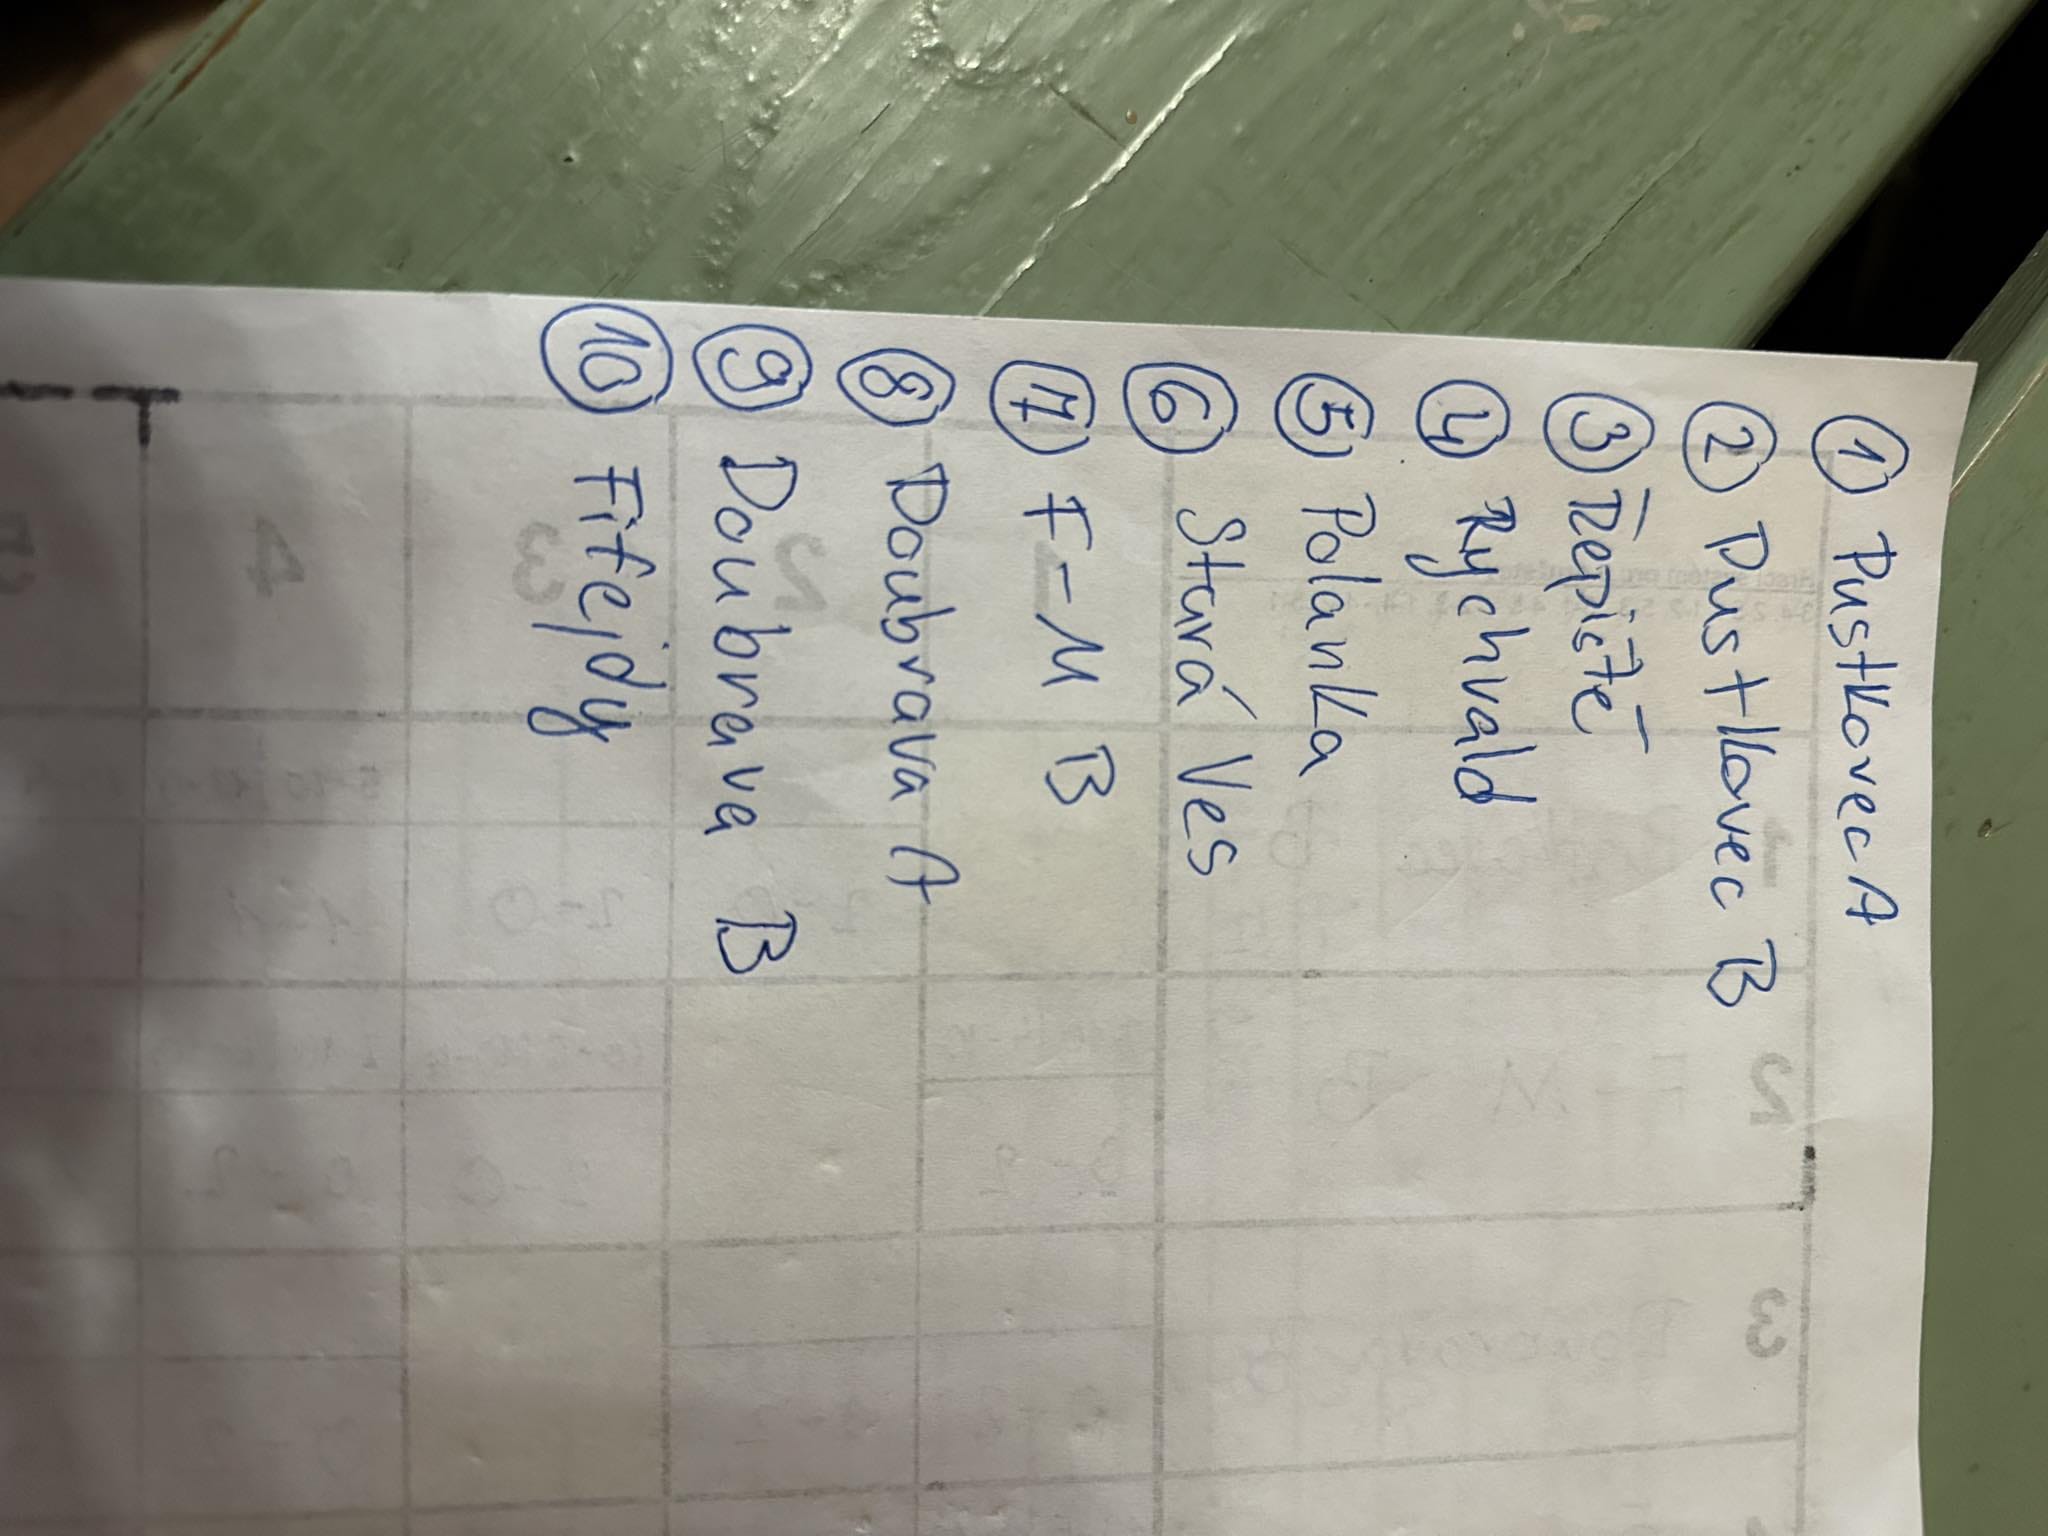 1 Pustkovec A
2 Pustkovec B
3 Řepiště
4 Rychvald
5 Polanka
6 Stará Ves
7 F-M B
8 Doubrava A
9 Doubrava B
10 Fifejdy
1
2
3
4
5
2
3
F-M B
Doubrava B
2-0